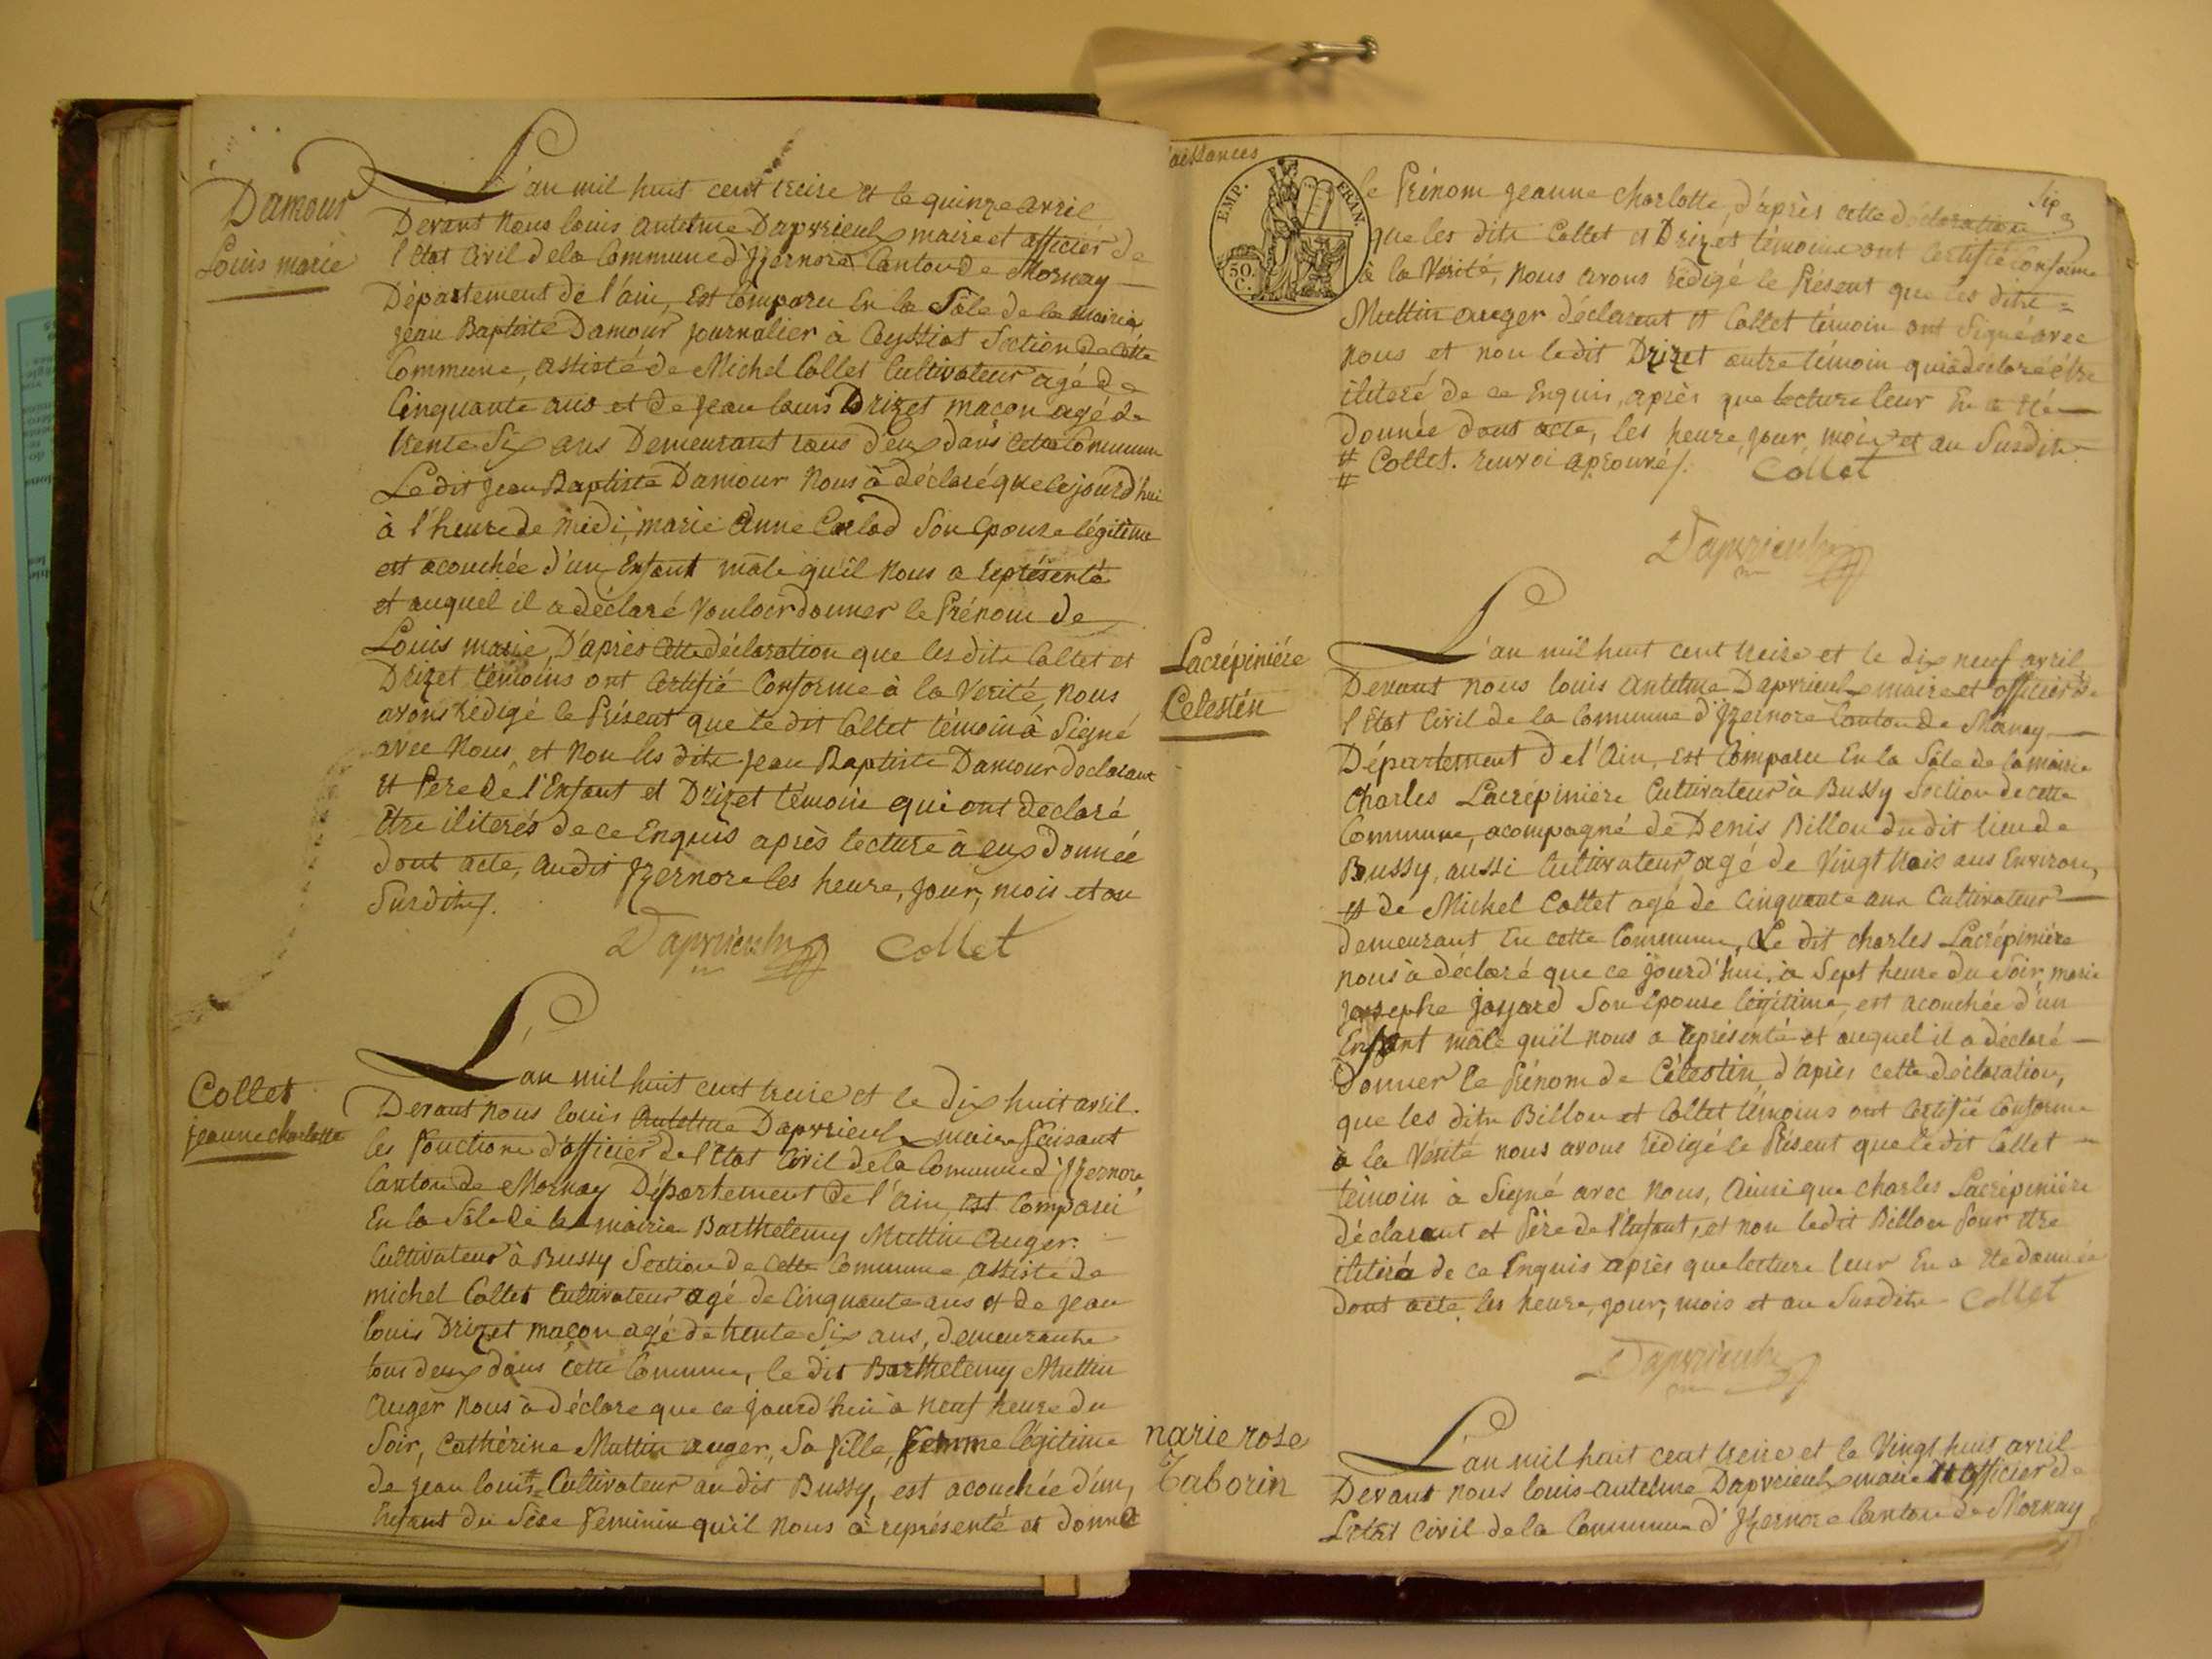 Damour
Louis marie
L'an mil huit cent treise et le quinze avril
Devant Nous louis antelme Dapvrieulx maire et officier de
l'Etat Civil de la Commune d'Yzernore Canton de Mornay
Département de l'ain, Est Comparu En la Sâle de la mairie
jean Baptiste Damour journalier à Ceyssiat Section de Cette
Commune, assisté de Michel Collet Cultivateur agé de
Cinquante ans et de jean louis Drizet macon agé de
trente Six ans Demeurant tous deux dans Cette Commune
Le dit jean Baptiste Damour Nous à déclaré que cejourd'hui
à l'heure de midi, marie Anne Carlod Son Epouse légitime
est acouchée d'un Enfant mâle qu'il Nous a représenté
et auquel il a déclaré Vouloir donner le Prénom de
Louis marie, D'après Cette déclaration que les dits Collet et
Drizet témoins ont Certifié Conforme à la Verité, nous
avons rédigé le Présent que le dit Collet témoin à Signé
avec Nous, et Non les dits jean Baptiste Damour déclarant
et Pere de l'Enfant et Drizet témoin qui ont declaré
être iliterés de ce Enquis après lecture à eux donnée
dont acte, audit Yzernore les heure, jour, mois et an
Susdits/.
Dapvrieulx Collet
Collet
jeanne charlotte
L'an mil huit cent treise et le Dix huit avril.
Devant nous louis Antelme Dapvrieulx maire faisant
les fonctions d'officier de l'Etat Civil de la Commune d'Yzernore
Canton de Mornay Département de l'Ain, est Comparu
En la Sâle de la mairie Barthelemy Muttin Auger.
Cultivateur à Bussy Section de Cette Commune, assisté de
michel Collet Cultivateur agé de Cinquante ans et de jean
louis Drizet macon agé de trente Six ans, demeurants
tous deux dans cette Commune, le dit Barthelemy Muttin
Auger Nous à déclaré que ce jourd'hui à neuf heure du
Soir, Cathérine Muttin auger, Sa fille, femme légitime
de jean louis # Cultivateur au dit Bussy, est acouchée d'un
Enfant du Sexe féminin qu'il nous à représenté et donné
aissances
EMP. FRAN.
50.
C.
le Prénom jeanne Charlotte, d'après cette déclaration
que les dits Collet et Drizet témoins ont Certifié conforme
à la Vérité, nous avons rédigé le Présent que les dits =
Muttin auger déclarant et Collet témoin ont Signé avec
nous, et non le dit Drizet autre témoin qui à déclaré être
iliteré de ce Enquis, après que lecture leur En a été
donnée dont acte, les heure, jour, mois et an Susdits
# Collet. renvoi aprouvé/. Collet
#
Dapvrieulx
Lacrépinière
Celestin
L'an mil huit cent treise et le dix neuf avril
Devant nous louis antelme Dapvrieulx maire et officier de
l'Etat Civil de la Commune d'Yzernore Canton de Mornay
Département de l'Ain, est Comparu En la Sâle de la mairie
Charles Lacrépinière Cultivateur à Bussy Section de cette
Commune, acompagné de Denis Billon du dit lieu de
Bussy, aussi Cultivateur agé de Vingt trois ans Environ,
et de Michel Collet agé de Cinquante ans Cultivateur
demeurant En cette Commune, Le dit Charles Lacrépinière
nous à déclaré que ce jourd'hui, à Sept heure du Soir, marie
josephe jayard Son Epouse légitime, est acouchée d'un
Enfant mâle qu'il nous a représenté et auquel il a déclaré
donner le Prénom de Célestin, d'après cette déclaration,
que les dits Billon et Collet témoins ont Certifié Conforme
à la Vérité nous avons rédigé le Présent que le dit Collet
témoin à Signé avec Nous, Ainsi que charles Lacrépinière
déclarant et Père de l'Enfant, et non le dit Billon Pour être
iliteré de ce Enquis après que lecture leur En a été donnée
dont acte, les heure, jour, mois et an Susdits Collet
Dapvrieulx
marie rose
Taborin
L'an mil huit cent treise et le Vingt huit avril
Devant nous louis antelme Dapvrieulx maire et officier de
L'état Civil de la Commune d'Yzernore Canton de Mornay